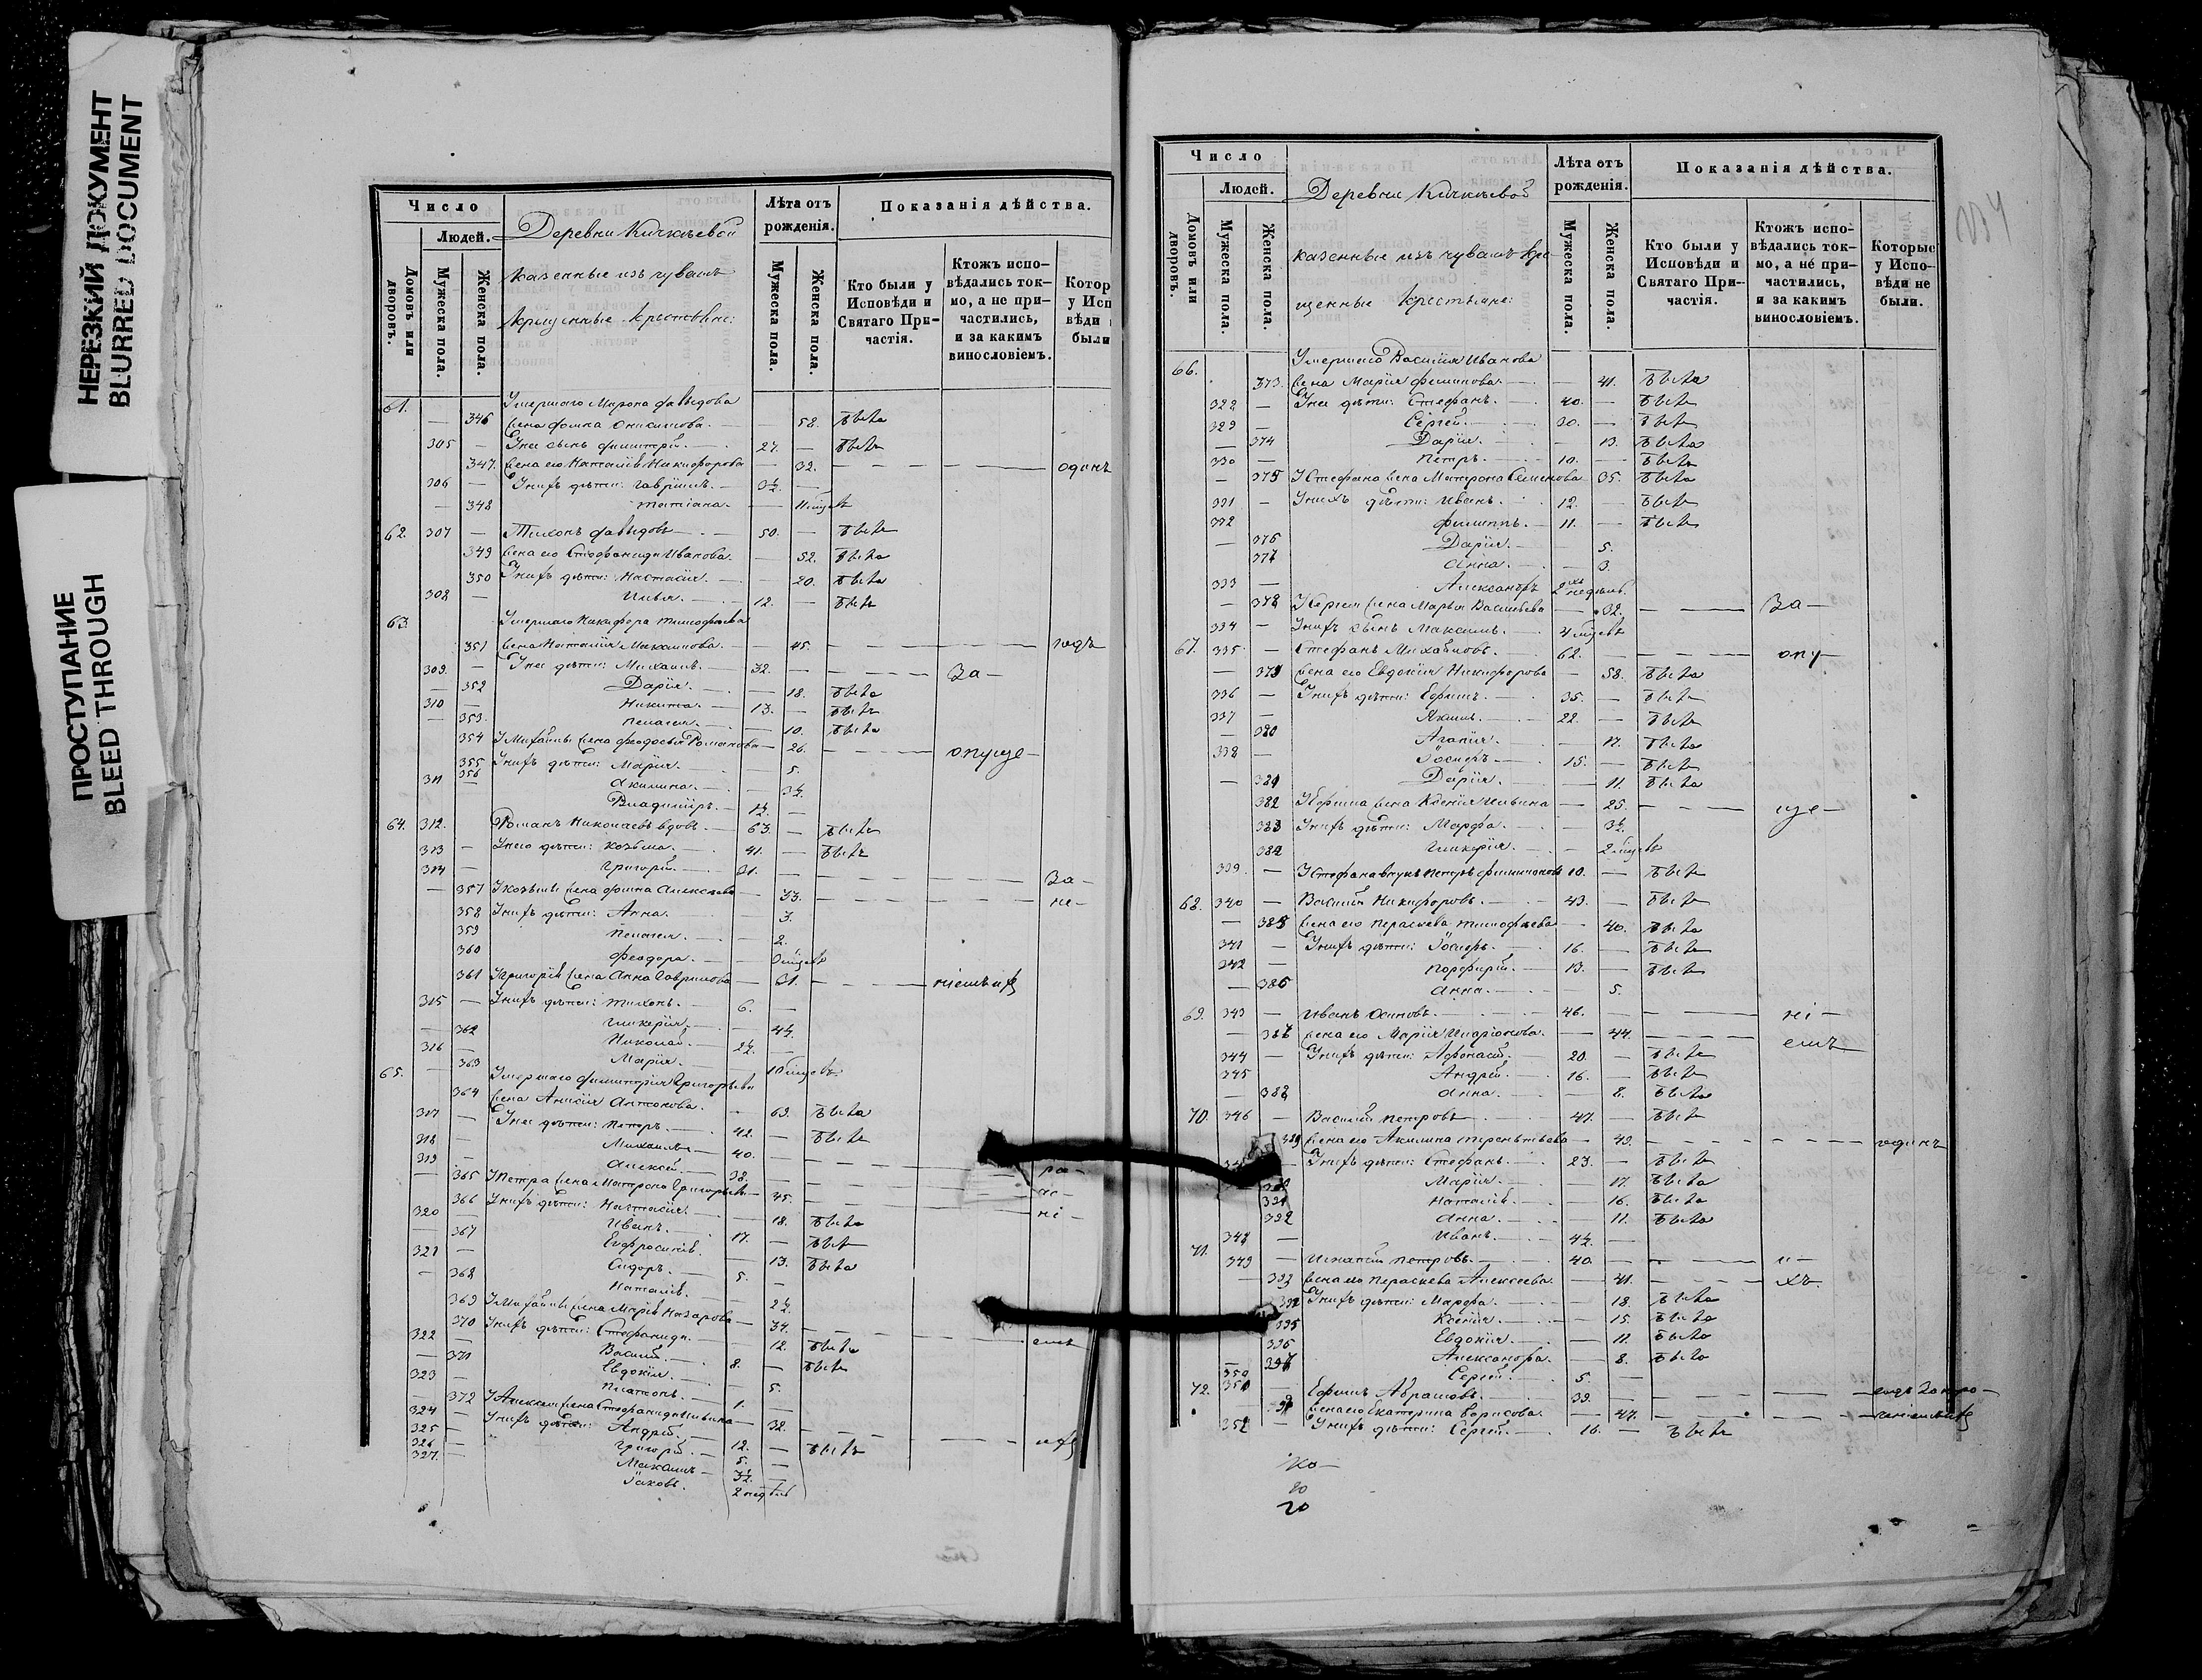 НЕРЕЗКИЙ ДОКУМЕНТ
BLURRED DOCUMENT
ПРОСТУПАНИЕ
BLEED THROUGH
Число
Людей.
Домовъ или дворовъ.
Мужеска пола.
Женска пола.
Деревни Кичкѣевой
казенные изъ чувашъ
крещенные крестьяне:
Лѣта отъ рожденія.
Мужеска пола.
Женска пола.
Показанія дѣйства.
Кто были у Исповѣди и Святаго Причастія.
Ктожъ исповѣдались токмо, а не причастились, и за какимъ винословіемъ.
Котор
у Исп
вѣди
были
61. Умершаго Мирона Давыдова
346 жена Фокла Онисимова. 58. была
305 У нея сынъ Димитрій. 27. былъ
347. жена его Наталія Никифорова 32. одинъ
306 У нихъ дѣти: Гавріилъ. 3½.
348 Татіана.
62. 307 Тихонъ Давыдовъ 50. былъ
349 жена его Стефанида Иванова. 52. была
350 У нихъ дѣти: Настасія. 20. была
308 Илья. 12. былъ
63. Умершаго Никифора Тимофѣева
351 жена Наталія Михайлова. 45. годъ
309. У нея дѣти: Михаилъ. 32. За
352 Дарія. 18. была
310 Никита. 13. былъ
353. Пелагея. 10. была
354 У Михайлы жена Феодосья Романова 26. опуще
355 У нихъ дѣти: Марія. 5.
356 Акилина. 3½.
311 Владиміръ. 1½.
64. 312. Романъ Николаевъ вдовъ. 63. былъ
313 У него дѣти: Козьма. 41. былъ
314 Григорій. 31. За
357 У Козьмы жена Ирина Алексѣева 33. не
358 У нихъ дѣти: Анна. 3.
359 Пелагея. 2.
360 Феодора.
361 У Григорія жена Анна Гаврилова 31. ніемъ ихъ
315 У нихъ дѣти: Тихонъ. 6.
362 Гликерія. 4½.
316 Николай. 2½.
363 Марія.
65. Умершаго Димитрія Григорьева
364 жена Анисія Антонова. 63. была
317 У нея дѣти: Петръ. 42. былъ
318 Михаилъ 40.
319 Алексѣй. 38. ра
365 У Петра жена Матрона Григорьева 45.
366 У нихъ дѣти: Настасія. 18. была ні
320 Иванъ. 17. былъ
367 Евфросинія. 13. была
321 Сидоръ. 5.
368 Наталія. 2½.
369 У Михайлы жена Марія Назарова 34. емъ
370 У нихъ дѣти: Стефанида. 12. была
322 Василій. 8. былъ
371 Евдокія. 5.
323 Платонъ. 1.
372 У Алексѣя жена Стефанида Ильина 32. ихъ
324 У нихъ дѣти: Андрей. 12. былъ
325 Григорій. 5.
326 Максимъ 3½.
327. Іаковъ. 2 недѣль
Число
Людей.
Домовъ или дворовъ.
Мужеска пола.
Женска пола.
Деревни Кичкѣевой
казенные изъ чувашъ кре
щенные крестьяне:
Лѣта отъ рожденія.
Мужеска пола.
Женска пола.
Показанія дѣйства.
Кто были у Исповѣди и Святаго Причастія.
Ктожъ исповѣдались токмо, а не причастились, и за какимъ винословіемъ.
Которые у Исповѣди не были.
66. Умершаго Василія Иванова
373. жена Марія Филипова. 41. была
328 У нея дѣти: Стефанъ. 40. былъ
329 Сергей. 30. былъ
374 Дарія. 13. была
330 Петръ. 10. былъ
375 У Стефана жена Матрона Семенова 35. была
331 У нихъ дѣти: Иванъ. 12. былъ
332 Филиппъ. 11. былъ
376 Дарія. 5.
377 Анна. 3.
333 Александръ 2хъ недѣль.
378 У Сергея жена Марья Васильева 32. За
334 У нихъ сынъ Максимъ.
67. 335 Стефанъ Михайловъ. 62. опу
379 жена его Евдокія Никифорова 58. была
336 У нихъ дѣти: Ефимъ. 35. былъ
337 Якимъ. 22. былъ
380 Агапія. 17. была
338 Іосифъ. 15. былъ
381 Дарія. 11. была
382 У Ефима жена Ксенія Ильина 25. ще
383 У нихъ дѣти: Марфа. 3½.
384 Гликерія.
339. У Стефана внукъ Петръ Филипповъ 10. былъ
68. 340 Василій Никифоровъ. 43. былъ
385 жена его Параскева Тимофѣева 40. была
341 У нихъ дѣти: Іосифъ. 16. былъ
342 Порфирій. 13. былъ
386 Анна. 5.
69. 343 Иванъ Осиповъ. 46. ні
387 жена его Марія Иларіонова. 44. емъ
344 У нихъ дѣти: Афонасій. 20. былъ
345 Андрей. 16. былъ
388 Анна. 8. была
70. 346 Василій Петровъ 47. былъ
389 жена его Акилина Терентьева 49. годинъ
У нихъ дѣти: Стефанъ. 23. былъ
Марія. 17. была
391 Наталія. 16. была
392 Анна. 11. была
348 Иванъ. 4½.
71. 349 Игнатій Петровъ. 40. и
393 жена его Параскева Алексѣева. 41. хъ
394 У нихъ дѣти: Марфа. 18. была
395 Ксенія. 15. была
396 Евдокія. 11. была
397 Александра. 8. была
350 Сергей. 5.
72. 351 Ефимъ Абрамовъ. 39.
жена его Екатерина Борисова. 47.
352 У нихъ дѣти: Сергей. 16. былъ